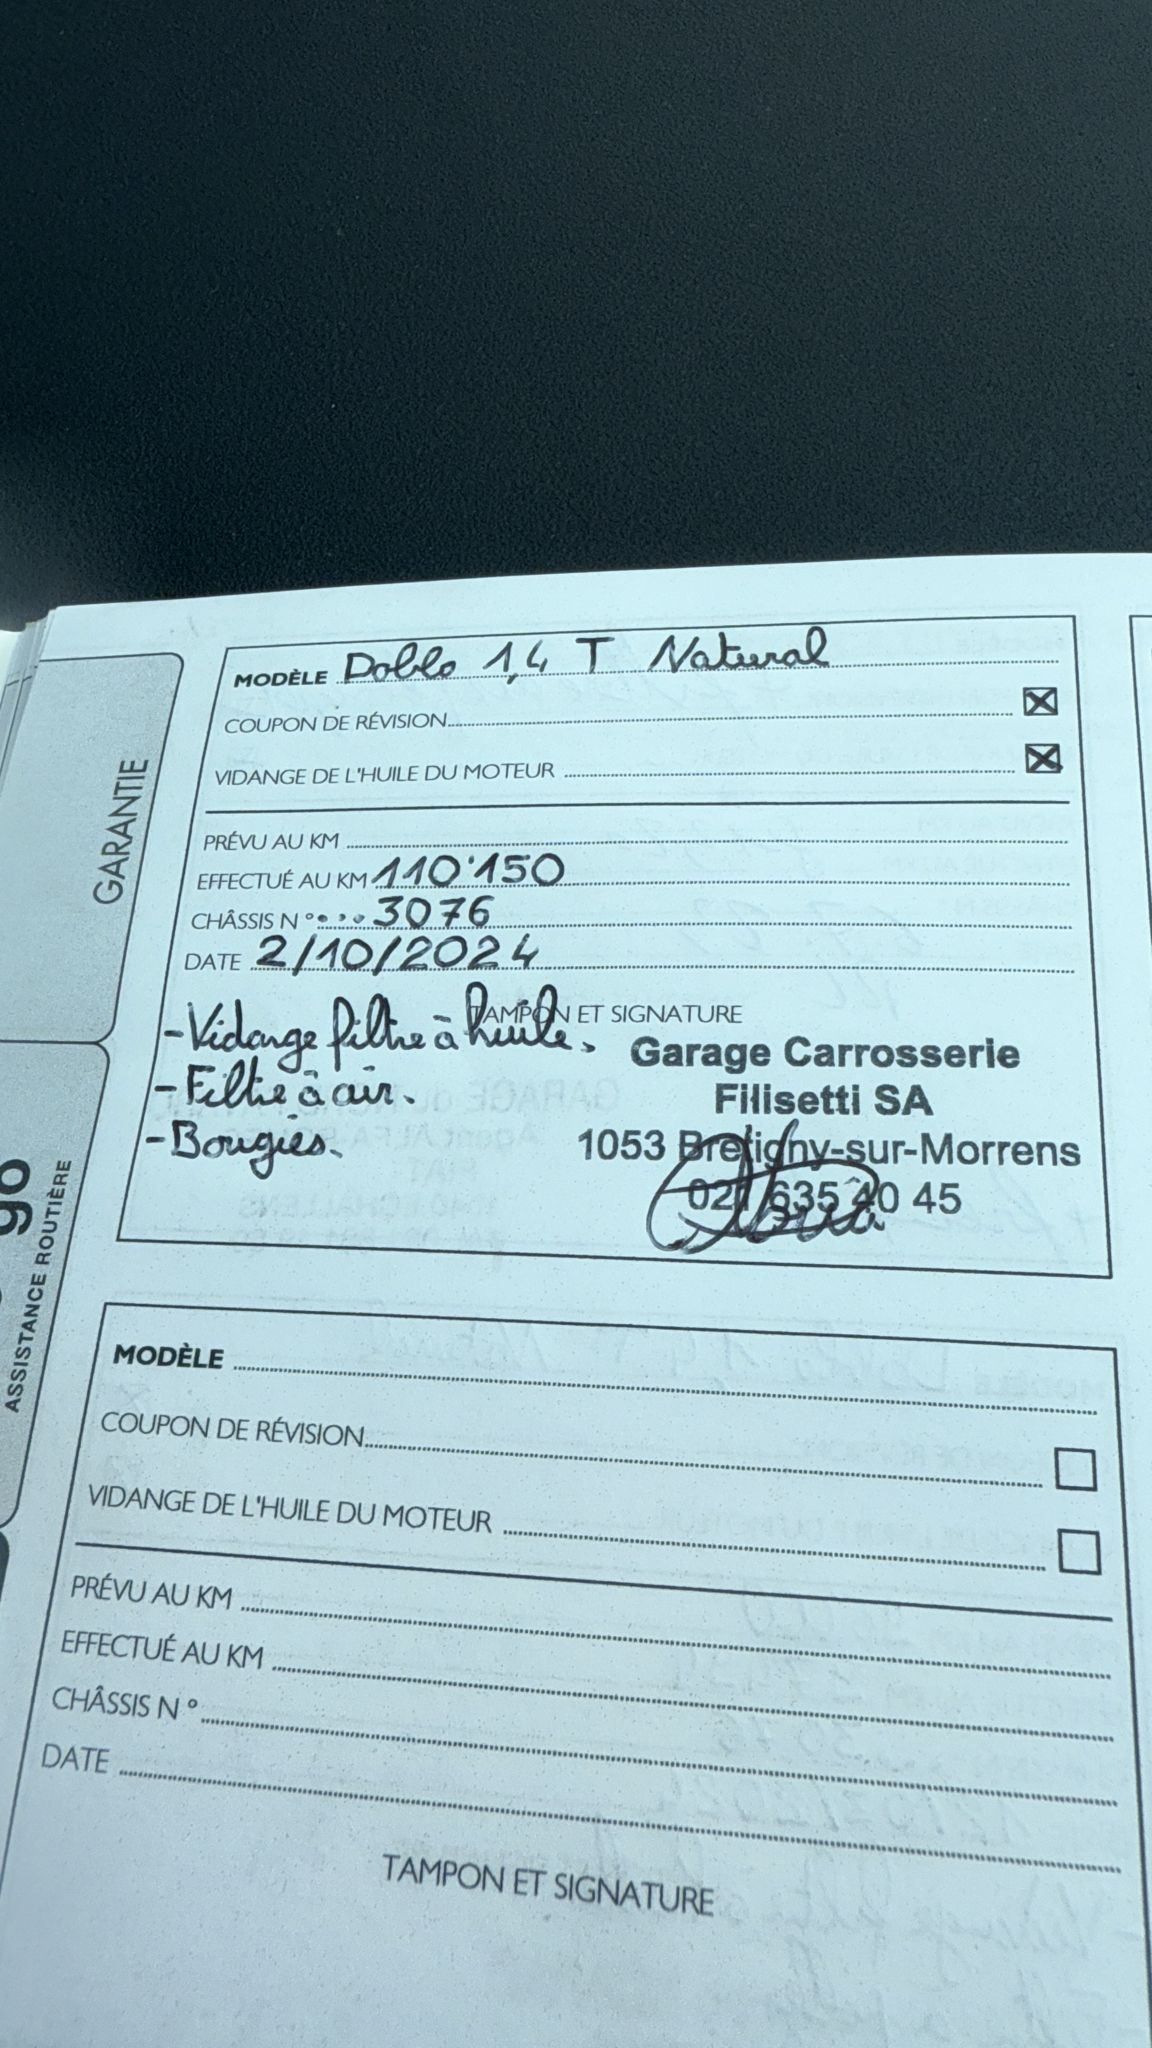 GARANTIE
MODÈLE Doblo 1,4 T Natural
COUPON DE RÉVISION
VIDANGE DE L'HUILE DU MOTEUR
PRÉVU AU KM
EFFECTUÉ AU KM 110'150
CHÂSSIS N° ... 3076
DATE 2/10/2024
TAMPON ET SIGNATURE
- Vidange filtre à huile.
- Filtre à air.
- Bougies.
Garage Carrosserie
Filisetti SA
1053 Bretigny-sur-Morrens
021 635 40 45
go
ASSISTANCE ROUTIÈRE
MODÈLE
COUPON DE RÉVISION
VIDANGE DE L'HUILE DU MOTEUR
PRÉVU AU KM
EFFECTUÉ AU KM
CHÂSSIS N°
DATE
TAMPON ET SIGNATURE